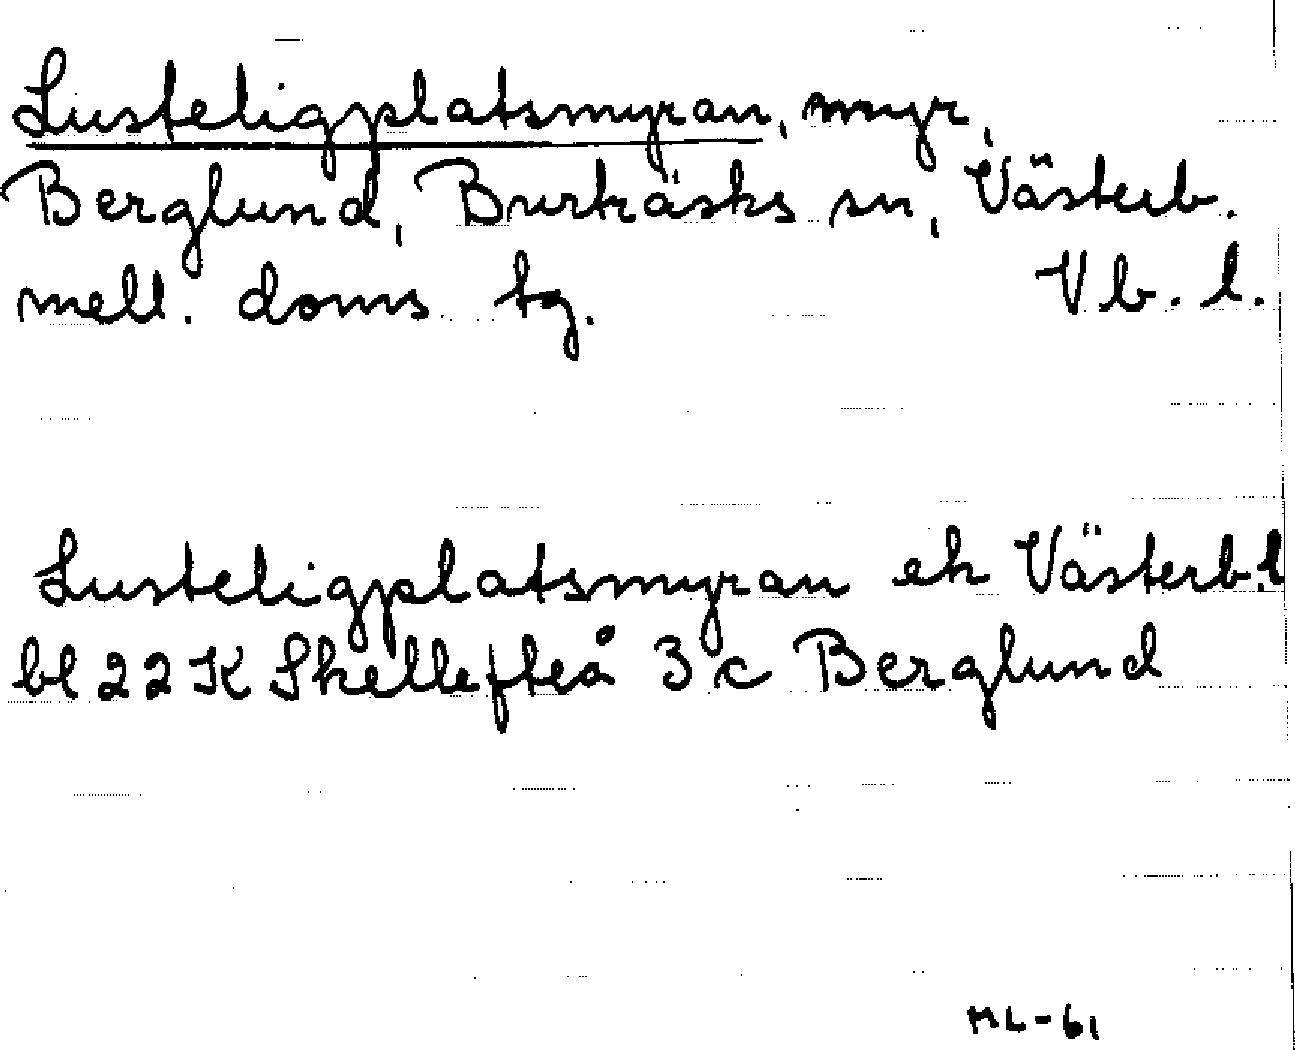 Lusteligplatsmyran, myr,
Berglund, Burträsks sn, Västerb.
mell. doms tg. Vb. l.
Lusteligplatsmyran ek Västerb. l
bl 22 K Skellefteå 3 c Berglund
ML-61